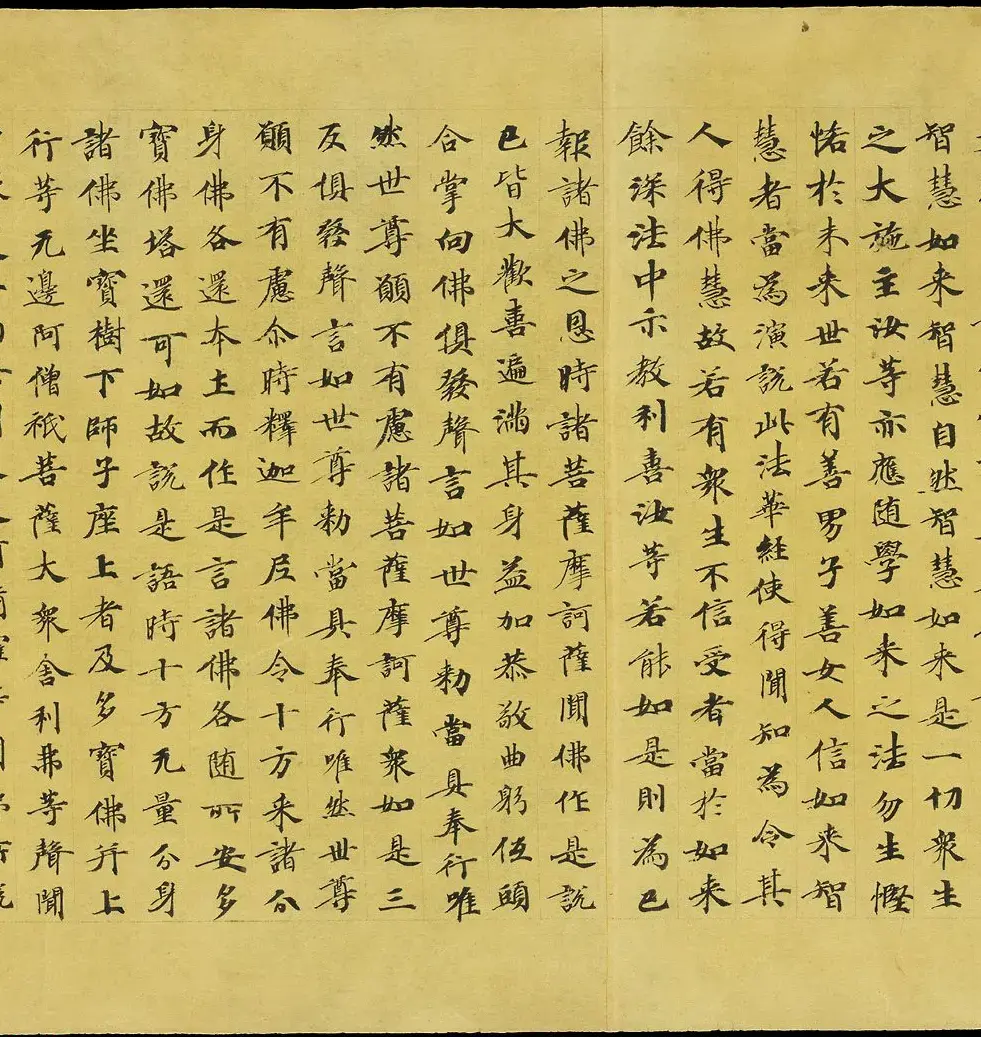 智慧如来智慧自然智慧如来是一切衆生
之大施主汝等亦應随學如来之法勿生慳
悋於未来世若有善男子善女人信如来智
慧者當為演說此法華經使得聞知為令其
人得佛慧故若有衆生不信受者當於如来
餘深法中示教利喜汝等若能如是則為已
報諸佛之恩時諸菩薩摩訶薩聞佛作是說
已皆大歡喜遍滿其身益加恭敬曲躬伍頭
合掌向佛俱發聲言如世尊勑當具奉行唯
然世尊願不有慮諸菩薩摩訶薩衆如是三
反俱發聲言如世尊勑當具奉行唯然世尊
願不有慮尒時釋迦牟尼佛令十方来諸分
身佛各還本土而作是言諸佛各随所安多
寶佛塔還可如故說是語時十方无量分身
諸佛坐寶樹下師子座上者及多寶佛并上
行等无邊阿僧祇菩薩大衆舍利弗等聲聞